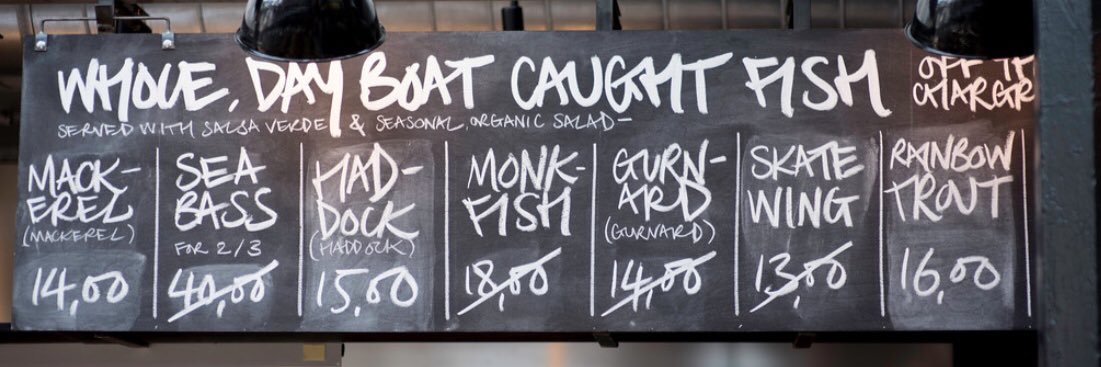 WHOLE, DAY BOAT CAUGHT FISH
SERVED WITH SALSA VERDE & SEASONAL, ORGANIC SALAD-
MACK-
EREL
(MACKEREL)
14,00
SEA
BASS
FOR 2/3
40,00
HAD-
DOCK
(HADDOCK)
15,00
MONK-
FISH
18,00
GURN-
ARD
(GURNARD)
14,00
SKATE
WING
13,00
RAINBOW
TROUT
16,00